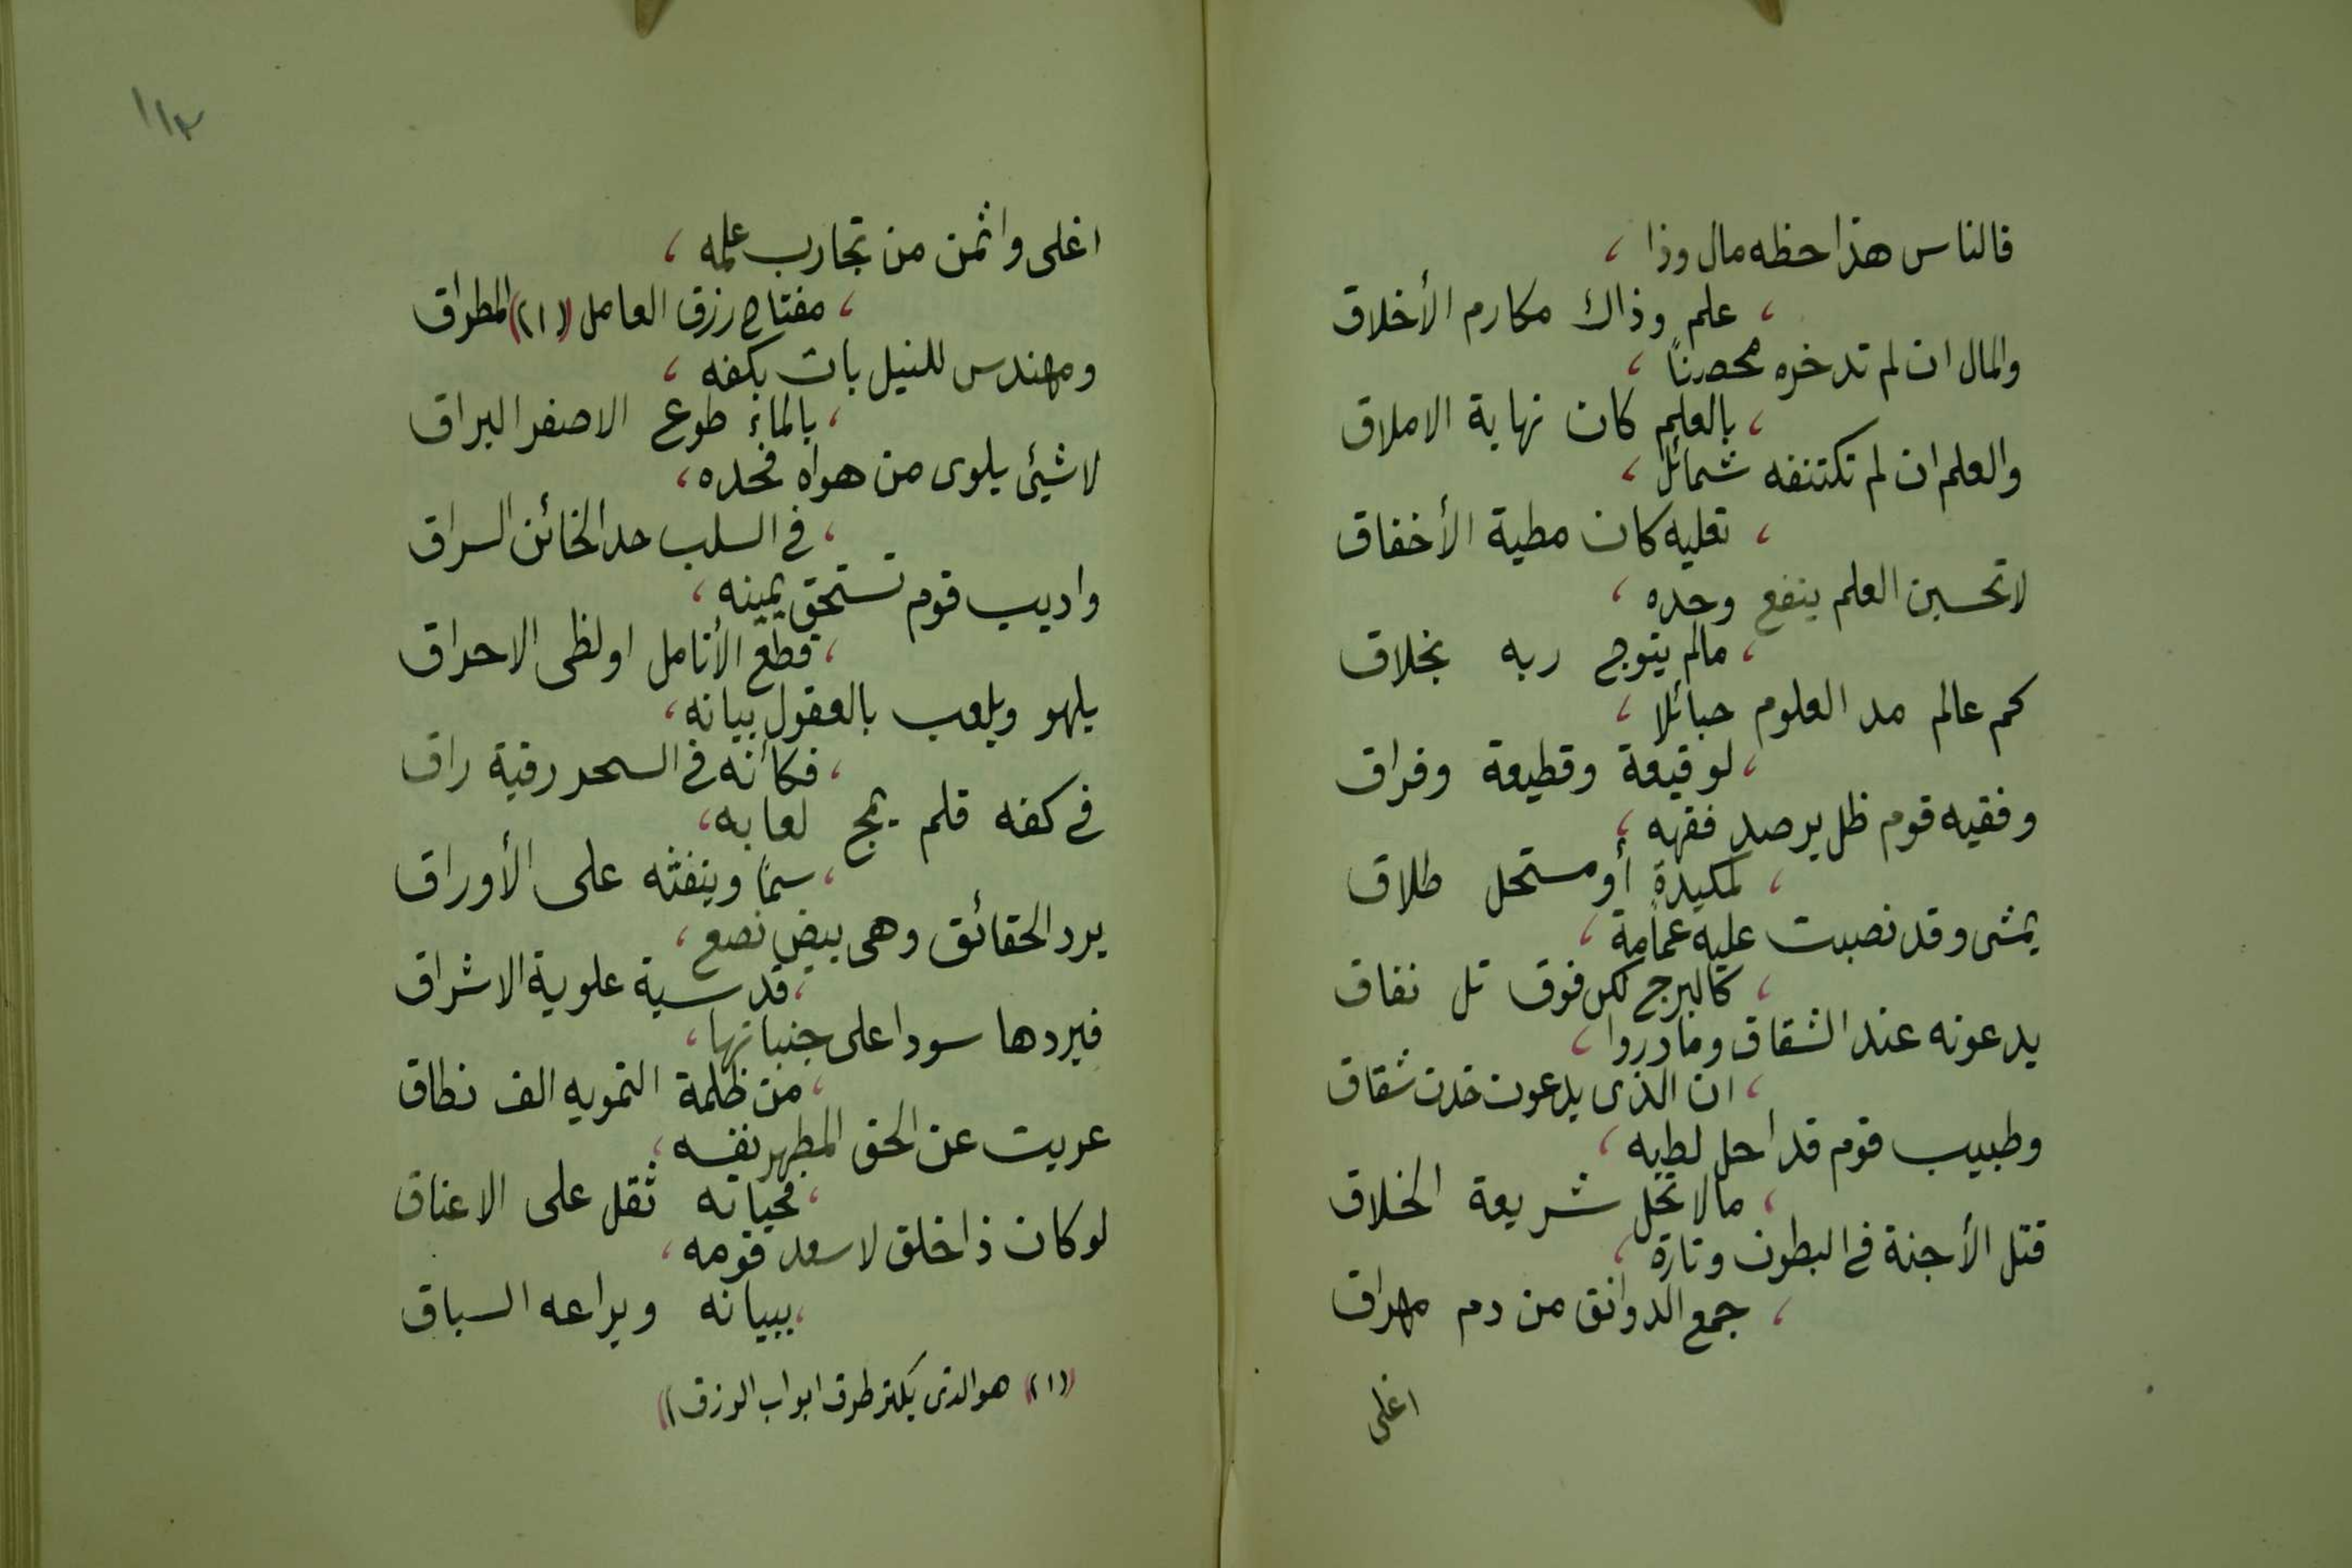 فالناس هذا حظه مال وذا ،
، علم وذاك مكارم الأخلاق
والمال ان لم تدخره محصناً ،
، بالعلم كان نهاية الاملاق
والعلم ان لم تكتنفه شمائل ،
، تعليه كان مطية الأخفاق
لا تحسبن العلم ينفع وحده ،
، مالم يتوج ربه بخلاق
كم عالم مد العلوم حبائلا ،
، لوقيعة وقطيعة وفراق
وفقيه قوم ظل يرصد فقهه ،
، لمكيدة أو مستحل طلاق
يمشى وقد نصبت عليه عمامة ،
، كالبرج لكن فوق تل نفاق
يدعونه عند الشقاق وما دروا ،
، ان الذى يدعون خدن شقاق
وطبيب قوم قد احل لطبه ،
، مالا تحل شريعة الخلاق
قتل الأجنة فى البطون وتارة ،
، جمع الدوانق من دم مهراق
اغلى
١١٣
اغلى واثمن من تجارب علمه ،
، مفتاح رزق العامل (١) المطراق
ومهندس للنيل بات بكفه ،
، بالماء طوع الاصفر البراق
لا شيئ يلوى من هواه فحده ،
، فى السلب حد الخائن السراق
واديب قوم تستحق يمينه ،
، قطع الأنامل او لظى الاحراق
يلهو ويلعب بالعقول بيانه ،
، فكأنه فى السحر رقية راق
فى كفه قلم يمج لعابه ،
، سماً وينفثه على الأوراق
يرد الحقائق وهى بيض نصع ،
، قدسية علوية الاشراق
فيردها سودا على جنباتها ،
، من ظلمة التمويه الف نطاق
عريت عن الحق المطهر نفسه ،
، فحياته ثقل على الاعناق
لو كان ذا خلق لاسعد قومه ،
، ببيانه ويراعه السباق
(١) هو الذى يكثر طرق ابواب الرزق)